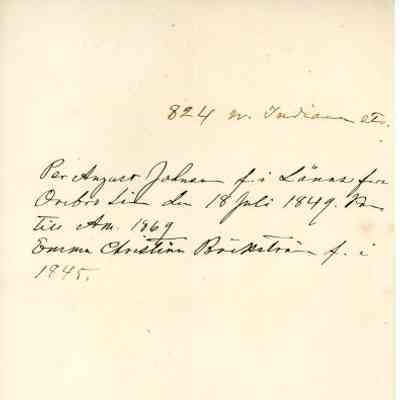 824 W. Indiana st.
Per August Johnson f. i Länna för
Örebro Län den 18 Juli 1849. Kom
till Am. 1869
Emma Christina Bäckström f. i
1845.